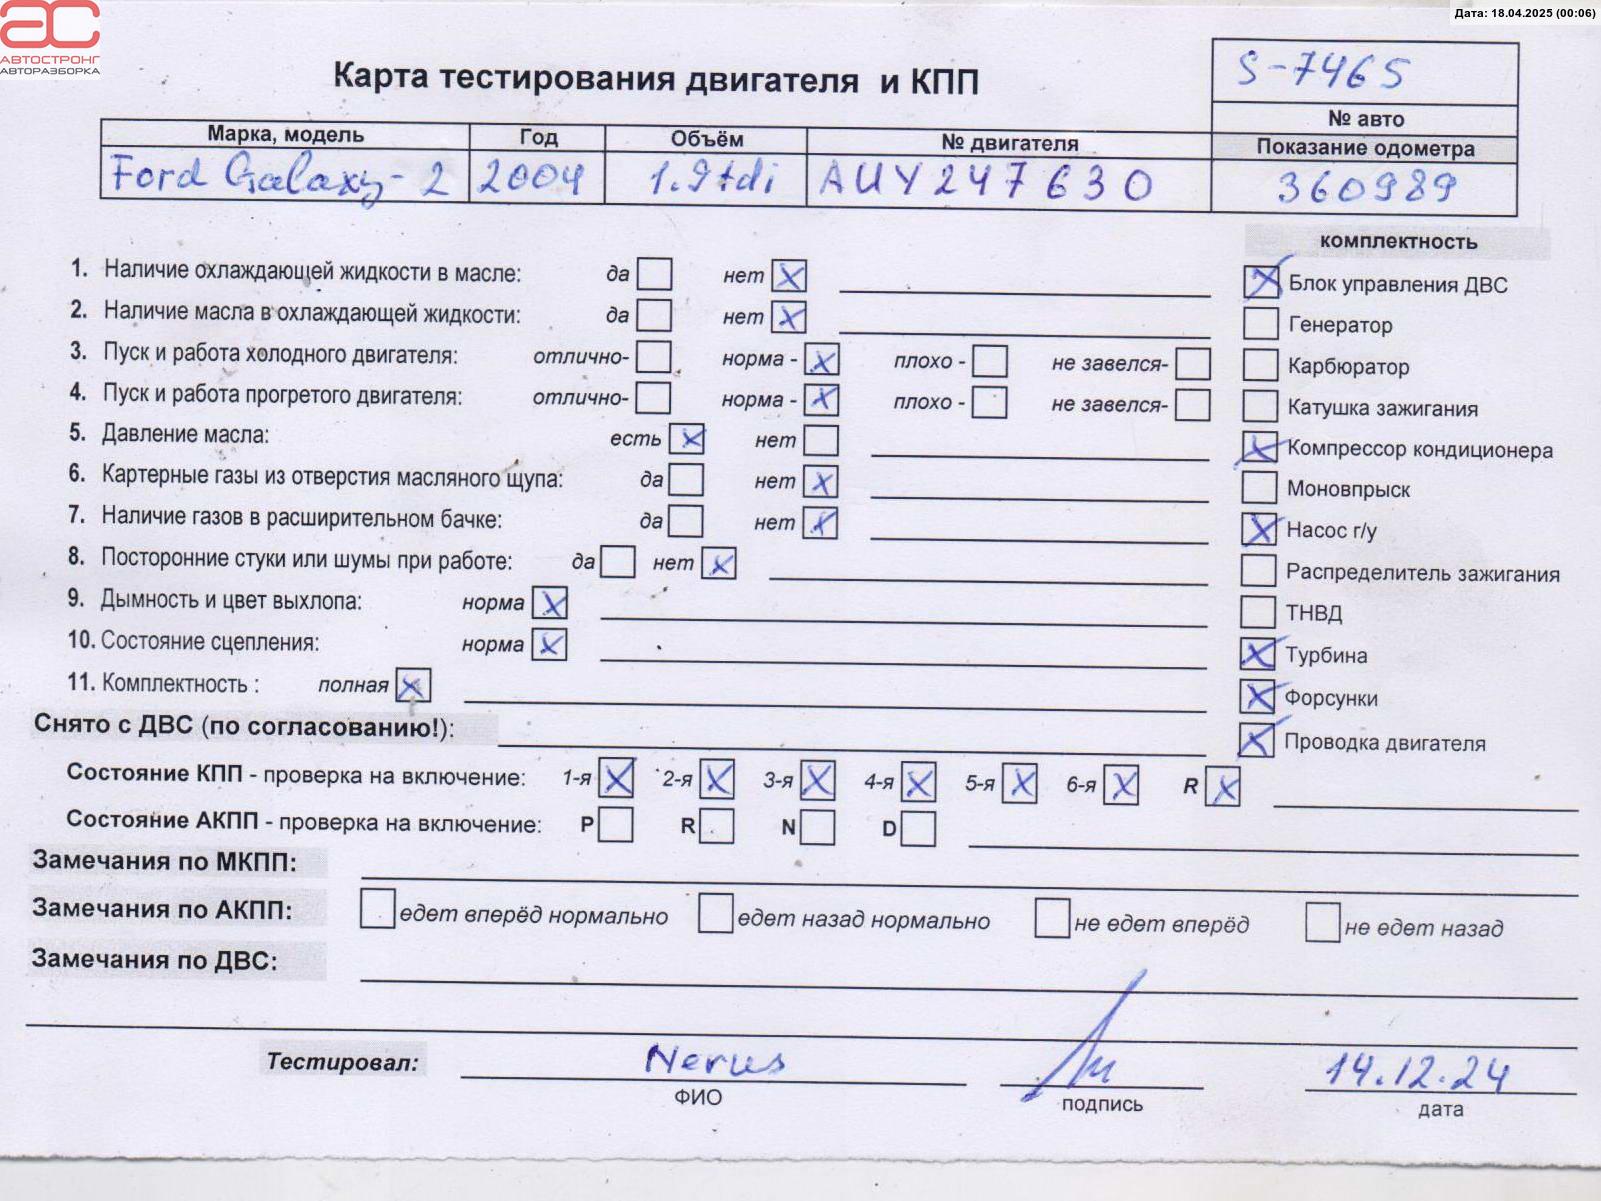 Дата: 18.04.2025 (00:06)
АС
АВТОСТРОНГ
АВТОРАЗБОРКА
Карта тестирования двигателя и КПП
S-7465
№ авто
Марка, модель Год Объём № двигателя Показание одометра
Ford Galaxy-2 2004 1.9tdi AUY247630 360989
комплектность
1. Наличие охлаждающей жидкости в масле: да нет X
Блок управления ДВС X
2. Наличие масла в охлаждающей жидкости: да нет X
Генератор
3. Пуск и работа холодного двигателя: отлично- норма - X плохо - не завелся-
Карбюратор
4. Пуск и работа прогретого двигателя: отлично- норма - X плохо - не завелся-
Катушка зажигания
5. Давление масла: есть X нет
X Компрессор кондиционера
6. Картерные газы из отверстия масляного щупа: да нет X
Моновпрыск
7. Наличие газов в расширительном бачке: да нет X
X Насос г/у
8. Посторонние стуки или шумы при работе: да нет X
Распределитель зажигания
9. Дымность и цвет выхлопа: норма X
ТНВД
10. Состояние сцепления: норма X
X Турбина
11. Комплектность : полная X
X Форсунки
Снято с ДВС (по согласованию!):
X Проводка двигателя
Состояние КПП - проверка на включение: 1-я X 2-я X 3-я X 4-я X 5-я X 6-я X R X
Состояние АКПП - проверка на включение: P R N D
Замечания по МКПП:
Замечания по АКПП: едет вперёд нормально едет назад нормально не едет вперёд не едет назад
Замечания по ДВС:
Тестировал: Nerus 14.12.24
ФИО подпись дата